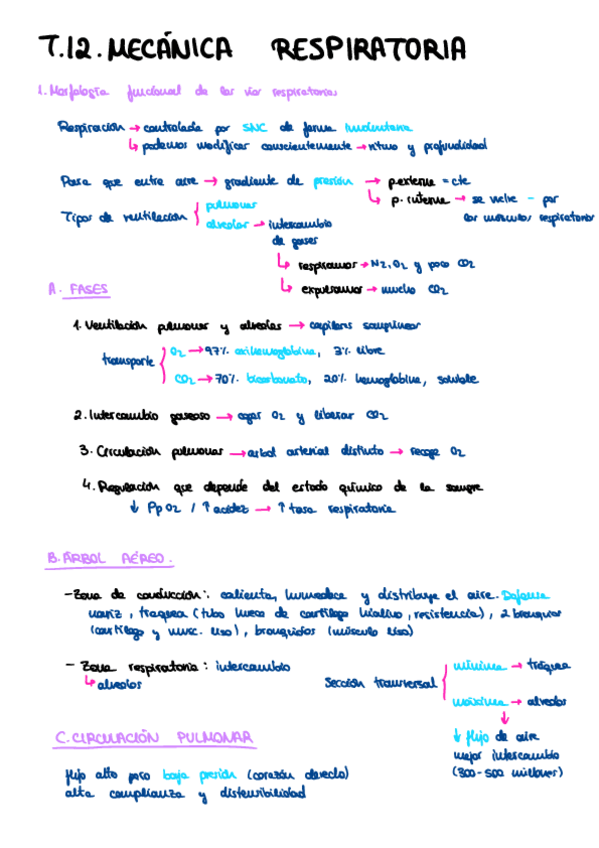 T.12. MECÁNICA RESPIRATORIA
1. Morfología funcional de las vías respiratorias
Respiración → controlada por SNC de forma involuntaria
↳ podemos modificar conscientemente → ritmo y profundidad
Para que entre aire → gradiente de presión → p. externa = cte
↳ p. interna → se vuelve - por los músculos respiratorios
Tipos de ventilación { pulmonar
alveolar → intercambio de gases
↳ respiramos → N2, O2 y poco CO2
↳ expulsamos → mucho CO2
A. FASES
1. Ventilación pulmonar y alveolar → capilares sanguíneos
transporte { O2 → 97% oxihemoglobina, 3% libre
CO2 → 70% bicarbonato, 20% hemoglobina, soluble
2. Intercambio gaseoso → coger O2 y liberar CO2
3. Circulación pulmonar → árbol arterial distinto → recoge O2
4. Regulación que depende del estado químico de la sangre
↓ Pp O2 / ↑ acidez → ↑ tasa respiratoria
B. ÁRBOL AÉREO.
- Zona de conducción: calienta, humedece y distribuye el aire. Defensa
nariz, traquea (tubo hueco de cartílago hialino, resistencia), 2 bronquios
(cartílago y musc. liso), bronquiolos (músculo liso)
- Zona respiratoria: intercambio
↳ alveolos
Sección transversal { mínima → tráquea
máxima → alveolos
↓
↓ flujo de aire
mejor intercambio
(300-500 millones)
C. CIRCULACIÓN PULMONAR
flujo alto pero baja presión (corazón derecho)
alta complianza y distensibilidad